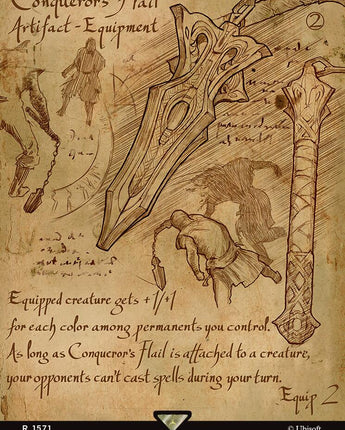 Conqueror's Flail
Artifact - Equipment
2
Equipped creature gets +1/+1
for each color among permanents you control.
As long as Conqueror's Flail is attached to a creature,
your opponents can't cast spells during your turn.
Equip 2
R 1571
© Ubisoft